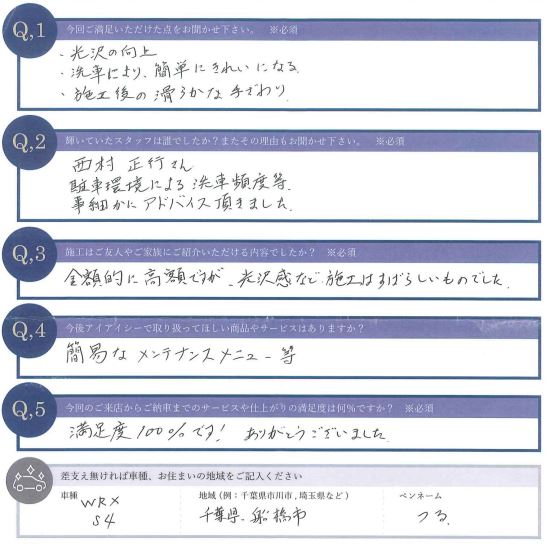 Q,1 今回ご満足いただけた点をお聞かせ下さい。 ※必須
・光沢の向上
・洗車により、簡単にきれいになる
・施工後の滑らかな手ざわり
Q,2 輝いていたスタッフは誰でしたか？またその理由もお聞かせ下さい。 ※必須
西村 正行さん
駐車環境による洗車頻度等、
事細かにアドバイス頂きました
Q,3 施工はご友人やご家族にご紹介いただける内容でしたか？ ※必須
金額的に高額ですが、光沢感など、施工はすばらしいものでした。
Q,4 今後アイアイシーで取り扱ってほしい商品やサービスはありますか？
簡易なメンテナンスメニュー等
Q,5 今回のご来店からご納車までのサービスや仕上がりの満足度は何%ですか？ ※必須
満足度100%です！ ありがとうございました
差支え無ければ車種、お住まいの地域をご記入ください
車種 WRX S4
地域（例：千葉県市川市，埼玉県など） 千葉県、船橋市
ペンネーム つる